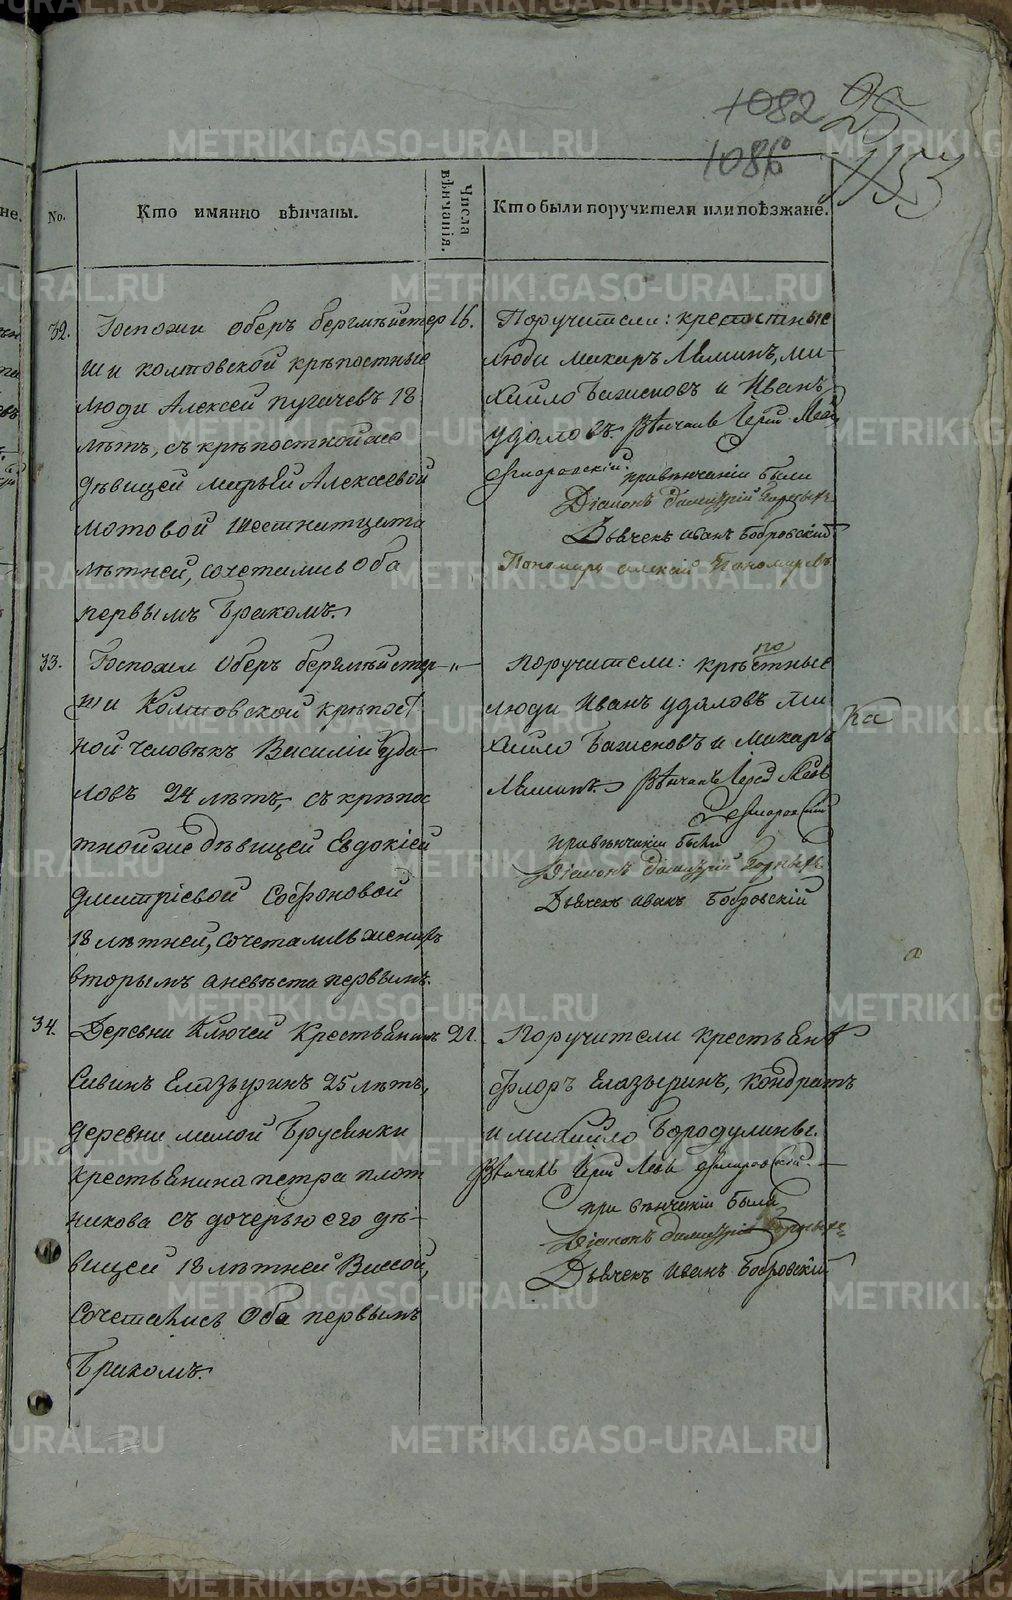 METRIKI.GASO-URAL.RU
1082 25
1086 1153
No.
Кто имянно вѣнчаны.
Числа вѣнчанія.
Кто были поручители или поѣзжане.
32. Госпожи оберъ бергмѣйстер 16.
ши колтовской крѣпостные
люди Алексей пугачевъ 18
лѣтъ, съ крѣпостной же
дѣвицей марьей Алексеевой
мотовой шестнатцати
лѣтней, сочетались оба
первымъ бракомъ.
Поручители: крепостные
люди макаръ Ляминъ, ми-
хайло Багиновъ и Иванъ
удаловъ. Вѣнчалъ Іерей
привѣнчаніи были
Діаконъ Димитрій
Дьячекъ иванъ Бобровскій
Пономарь алексий Пономаревъ
33. Госпожи Оберъ бергмѣйстер- „
ши Колтовской крѣпост
ной человѣкъ Василій Уда-
ловъ 24 лѣтъ, съ крѣпос
тной же дѣвицей Евдокіей
дмитріевой Софроновой
18 лѣтней, сочетались женихъ
вторымъ а невѣста первымъ.
поручители: крѣпостные
люди Иванъ удаловъ Ми
хайло Багиновъ и макаръ
Ляминъ. Вѣнчалъ Іерей
привѣнчаніи были
Діаконъ Димитрій
Дьячекъ иванъ Бобровскій
34. Деревни Ключей Крестьянинъ 21.
Савинъ Елазыринъ 25 лѣтъ,
деревни малой Брусянки
крестьянина петра плот
никова съ дочерью его дѣ-
вицей 18 лѣтней Вассой,
сочетались Оба первымъ
бракомъ.
Поручители крестьяне
флоръ Елазыринъ, кондратъ
и михайло Бородулины.
Вѣнчалъ Іерей
при вѣнчаніи были
Діаконъ Димитрій
Дьячекъ Иванъ Бобровскій